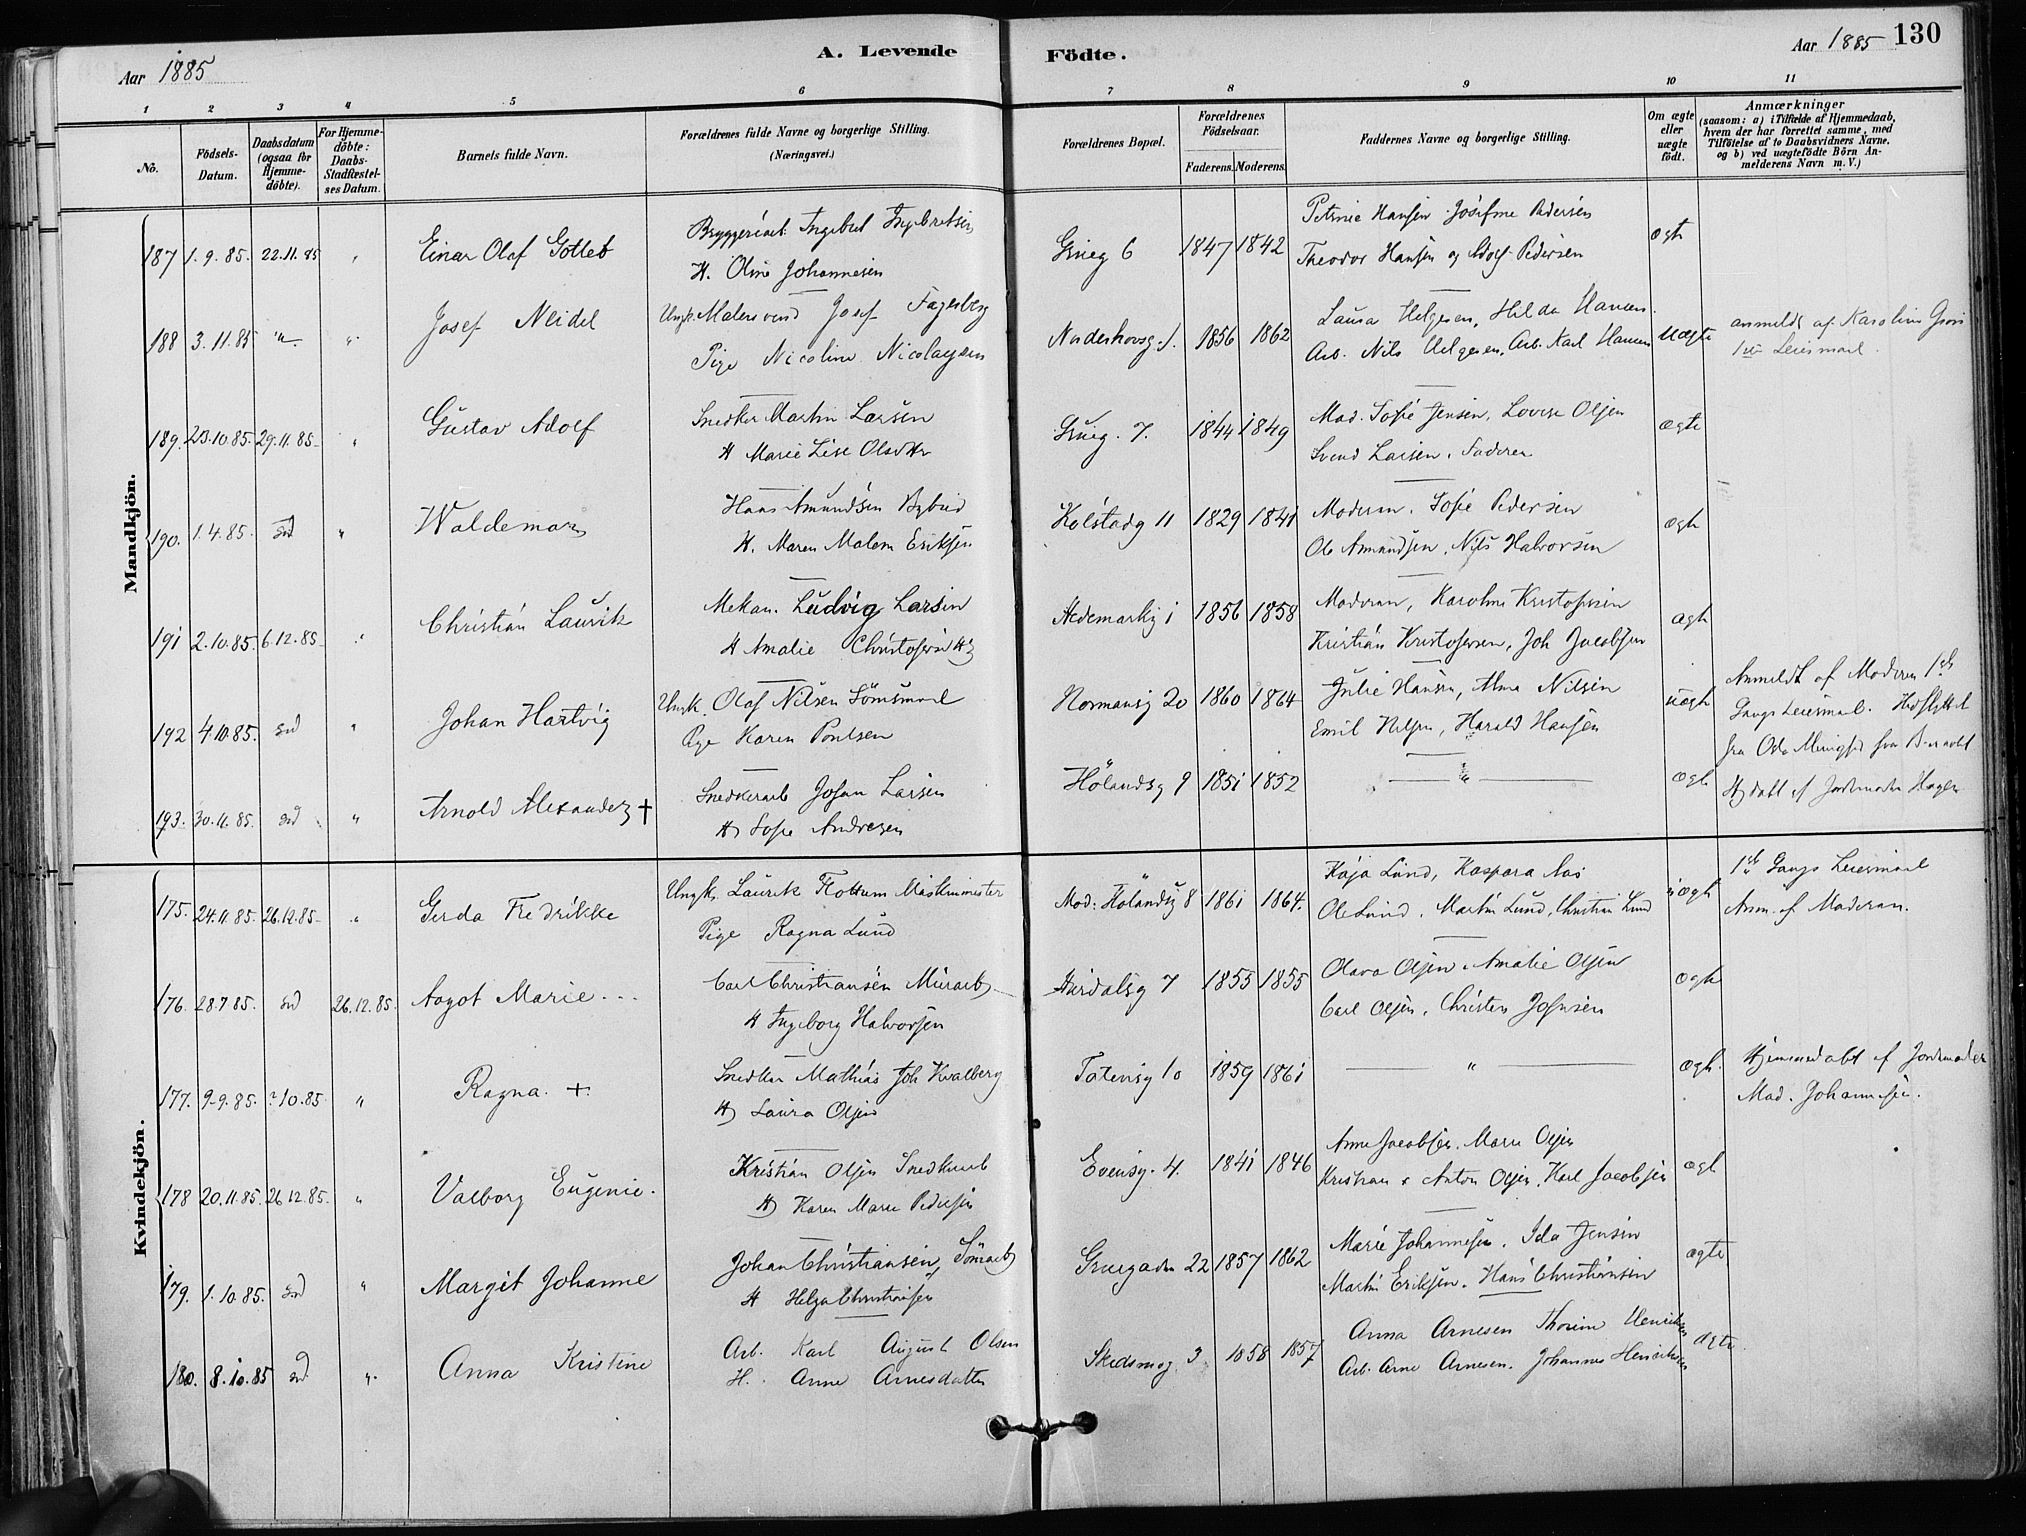 Aar 1885
A. Levende
Födte.
Aar 1885
130
1 2 3 4 5 6 7 8 9 10 11
No.
Födsels-
Datum.
Daabsdatum
(ogsaa for
Hjemme-
döbte).
For Hjemme-
döbte:
Daabs-
Stadfæstel-
ses Datum.
Barnets fulde Navn.
Forældrenes fulde Navne og borgerlige Stilling.
(Næringsvei.)
Forældrenes Bopæl.
Forældrenes
Födselsaar.
Faderens. Moderens.
Faddernes Navne og borgerlige Stilling.
Om ægte
eller
uægte
födt.
Anmærkninger
(saasom: a) i Tilfælde af Hjemmedaab,
hvem der har forrettet samme, med
Tilföielse af to Daabsvidners Navne,
og b) ved uægtefödte Börn An-
melderens Navn m. V.)
Mandkjön.
187 1.9.85. 22.11.85 " Einar Olaf Gotleb
Ingebret Ingebretsen
H. Oline Johannesen
Grueg 6 1847 1842
Petrine Hansen Josefine Pedersen
Theodor Hansen og Adolf Pedersen
ægte
188 3.11.85 " " Josef Neidel
Ungk. Malersvend Josef Fagerberg
Pige Nicoline Nicolaysen
Naderhovsg. 1. 1856 1862
Laura Helgesen, Hilda Hansen
Arb. Nils Helgesen, Arb. Karl Hansen
uægte
anmeldt af Karoline
Leiermaal.
189. 23.10.85. 29.11.85. " Gustav Adolf
Snedker Martin Larsen
H Marie Lise Olsdtr
Grueg. 7. 1844 1849
Mad. Sofie Jensen, Lovise Olsen
Svend Larsen. Faderen
ægte
190. 1.4.85. sd " Waldemar
Hans Amundsen Bybud
H. Maren Malene Eriksen
Kolstadg 11 1829 1841
Moderen. Sofie Pedersen
Ole Amundsen, Nils Halvorsen
ægte
191 2.10.85. 6.12.85. " Christian Laurits
Mekan. Ludvig Larsen
H Amalie
Hedemarksg 1 1856 1858
Moderen, Karoline Kristofersen
Kristian Kristofersen, Joh Jacobsen
ægte
192 4.10.85. sd " Johan Hartvig
Ungk. Olaf Nilsen Sömsmed
Pige Karen Poulsen
Normansg 20 1860 1864
Julie Hansen, Alma Nilsen
Emil Nilsen, Harald Hansen
uægte
Anmeldt af Moderen 1ste
Gangs Leiermaal. Indflyttet
fra
193. 30.11.85. sd " Arnold Alexander †
Snedkerarb Johan Larsen
H Sofie Andresen
Hölandsg 9 1851 1852
"
ægte
Hjdøbt af Jordemoder Hagen
Kvindekjön.
175. 24.11.85. 26.12.85. " Gerda Fredrikke
Ungk. Laurits Flottum Maskinmester
Pige Ragna Lund
Mod: Hölandsg 8 1861 1864.
Kaja Lund, Kaspara Aas
Ole Lund. Martin Lund, Christian Lund
uægte
1ste Gangs Leiermaal
Anm. af Moderen.
176. 28.7.85. sd 26.12.85. Aagot Marie...
Carl Christiansen Murarb
H Ingeborg Halvorsen
Hurdalsg 7 1855 1855
Olava Olsen. Amalie Olsen
Carl Olsen, Christen Johnsen
ægte
177. 9.9.85. ?10.85. " Ragna. +.
Snedker Mathias Joh Kvalberg
H Laura Olsen
Totensg 10 1859 1861
"
ægte.
Hjemmedøbt af Jordemoder
Mad. Johannesen.
178 20.11.85. 26.12.85. " Valborg Eugenie.
Kristian Olsen Snedkerarb
H Karen Marie Pedersen
Evensg. 4. 1841 1846
Anne Jacobsen. Marie Olsen
Kristian & Anton Olsen, Karl Jacobsen
ægte
179. 1.10.85. sd " Margit Johanne
Johan Christiansen,
H Helga Christiansen
Gruegaden 22 1857 1862
Marie Johannesen. Ida Jensen
Martin Eriksen. Hans Christiansen
ægte
180. 8.10.85 sd " Anna Kristine
Arb. Karl August Olsen
H. Anne Arnesdatter
Skedsmog. 3 1858 1857
Anna Arnesen Thorine Henriksen
Arb. Arne Arnesen. Johannes Henriksen
ægte.